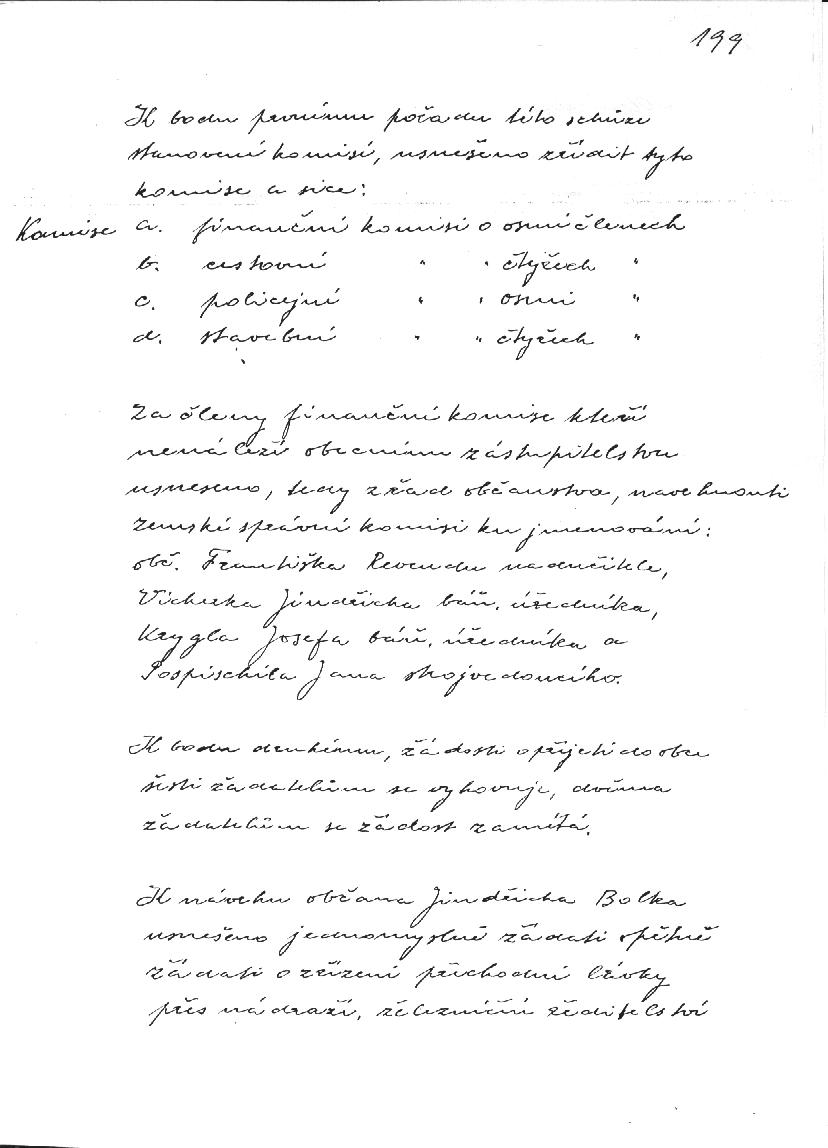 199
K bodu prvnímu pořadu této schůze
stanovení komisí, usnešeno zřídit tyto
komise a sice:
Komise a. finanční komisi o osmi členech
b. cestovní " " čtyřech "
c. policejní " " osmi "
d. stavební " " čtyřech "
Za členy finanční komise kteří
nenáleží obecnímu zástupitelstvu
usneseno, tedy z řad občanstva, navrhnouti
zemské správní komisi ku jmenování:
obč. Františka Revendu nadučitele,
Jindřicha báň. úředníka,
Krygla Josefa báň. úředníka a
Pospischila Jana strojvedoucího.
K bodu druhému, žádosti o přijetí do obce
šesti žadatelům se vyhovuje, dvěma
žadatelům se žádost zamítá.
K návrhu občana Jindřicha Bolka
usnešeno jednomyslně žádati opětně
žádati o zřízení přechodní lávky
přes nádraží, železniční ředitelství